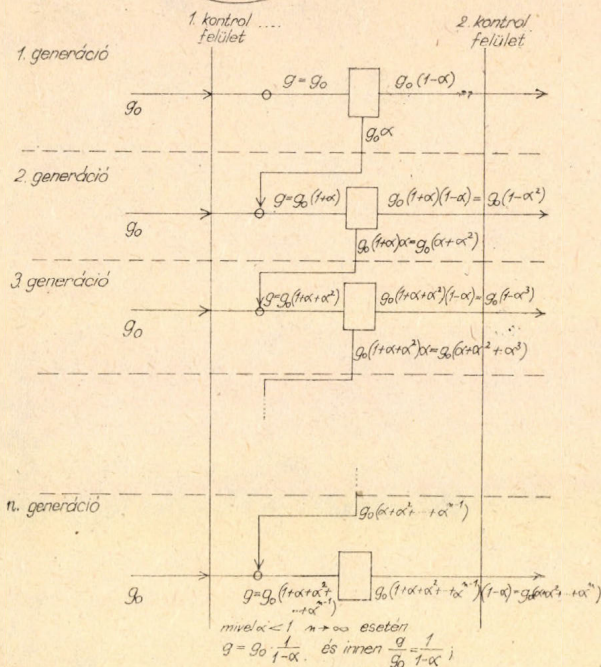 1. kontrol ....
felület
2. kontrol
felület
1. generáció
g = g₀
g₀(1-α)
g₀
g₀α
2. generáció
g=g₀(1+α)
g₀(1+α)(1-α)= g₀(1-α²)
g₀
g₀(1+α)α=g₀(α+α²)
3. generáció
g=g₀(1+α+α²)
g₀(1+α+α²)(1-α)=g₀(1-α³)
g₀
g₀(1+α+α²)α=g₀(α+α²+α³)
n. generáció
g₀(α+α²+...+αⁿ⁻¹)
g₀
g=g₀(1+α+α²+
...+αⁿ⁻¹)
g₀(1+α+α²+...+αⁿ⁻¹)(1-α)=g₀(α+α²+...+αⁿ)
mivel α<1 n→∞ esetén
g = g₀ · 1/(1-α) és innen g/g₀ = 1/(1-α) ;